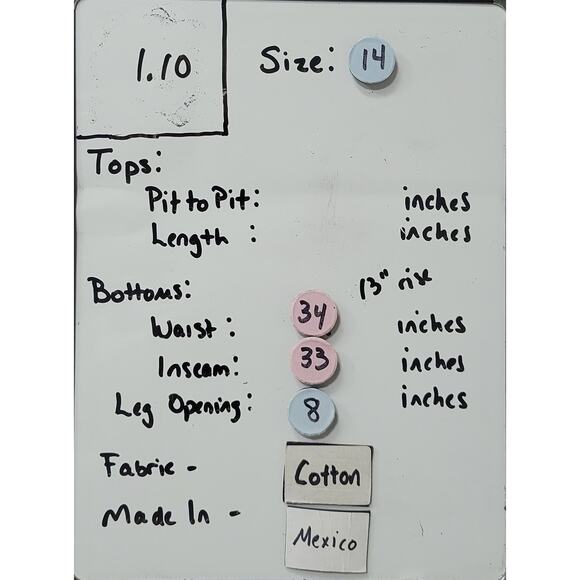 1.10 Size: 14
Tops:
Pit to Pit: inches
Length : inches
Bottoms: 13" rise
Waist : 34 inches
Inseam: 33 inches
Leg Opening: 8 inches
Fabric - Cotton
Made In - Mexico